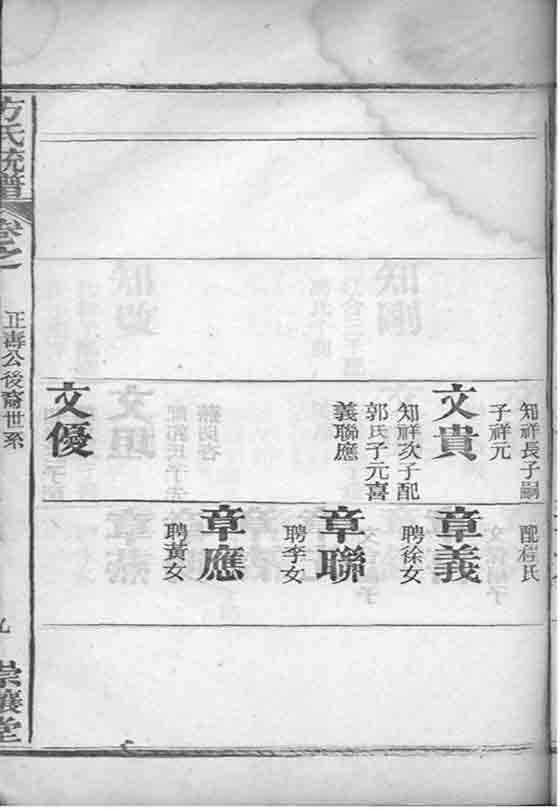 知祥長子嗣
子祥元
文貴
知祥次子配
郭氏子元喜
義聯應
文優
配氏
章義
聘徐女
章聯
聘李女
章應
聘黃女
方氏統譜
卷之
正壽公後裔世系
九
崇讓堂